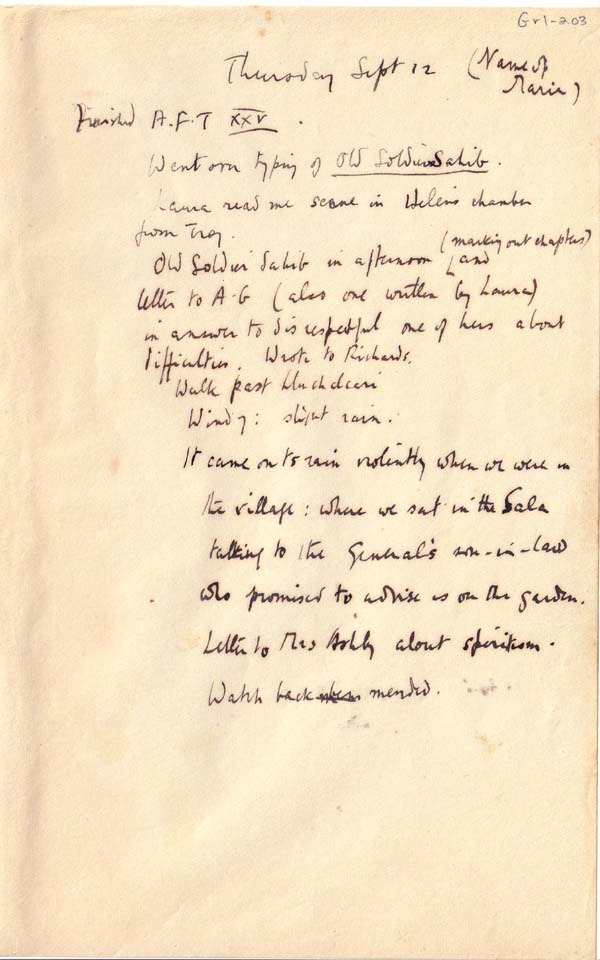 Gr1-203
Thursday Sept 12 (Name of
Maria)
Finished A.F.T XXV.
Went over typing of Old Soldier Sahib.
Laura read me scene in Helen's chamber
from Troy.
(marking out chapters)
Old Soldier Sahib in afternoon and
letter to A-G (also one written by Laura)
in answer to disrespectful one of hers about
difficulties. Wrote to Richards.
Walk past Lluchalcari
Windy: slight rain.
It came on to rain violently when we were in
the village: where we sat in the Sala
talking to the General's son-in-law
who promised to advise us on the garden.
Letter to Mrs Ashby about spiritism.
Watch back mended.